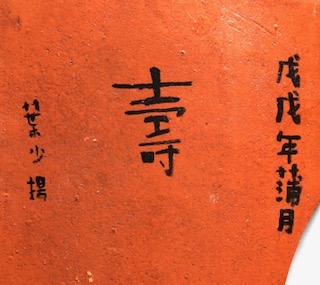 戊戌年蒲月
壽
葉少揚